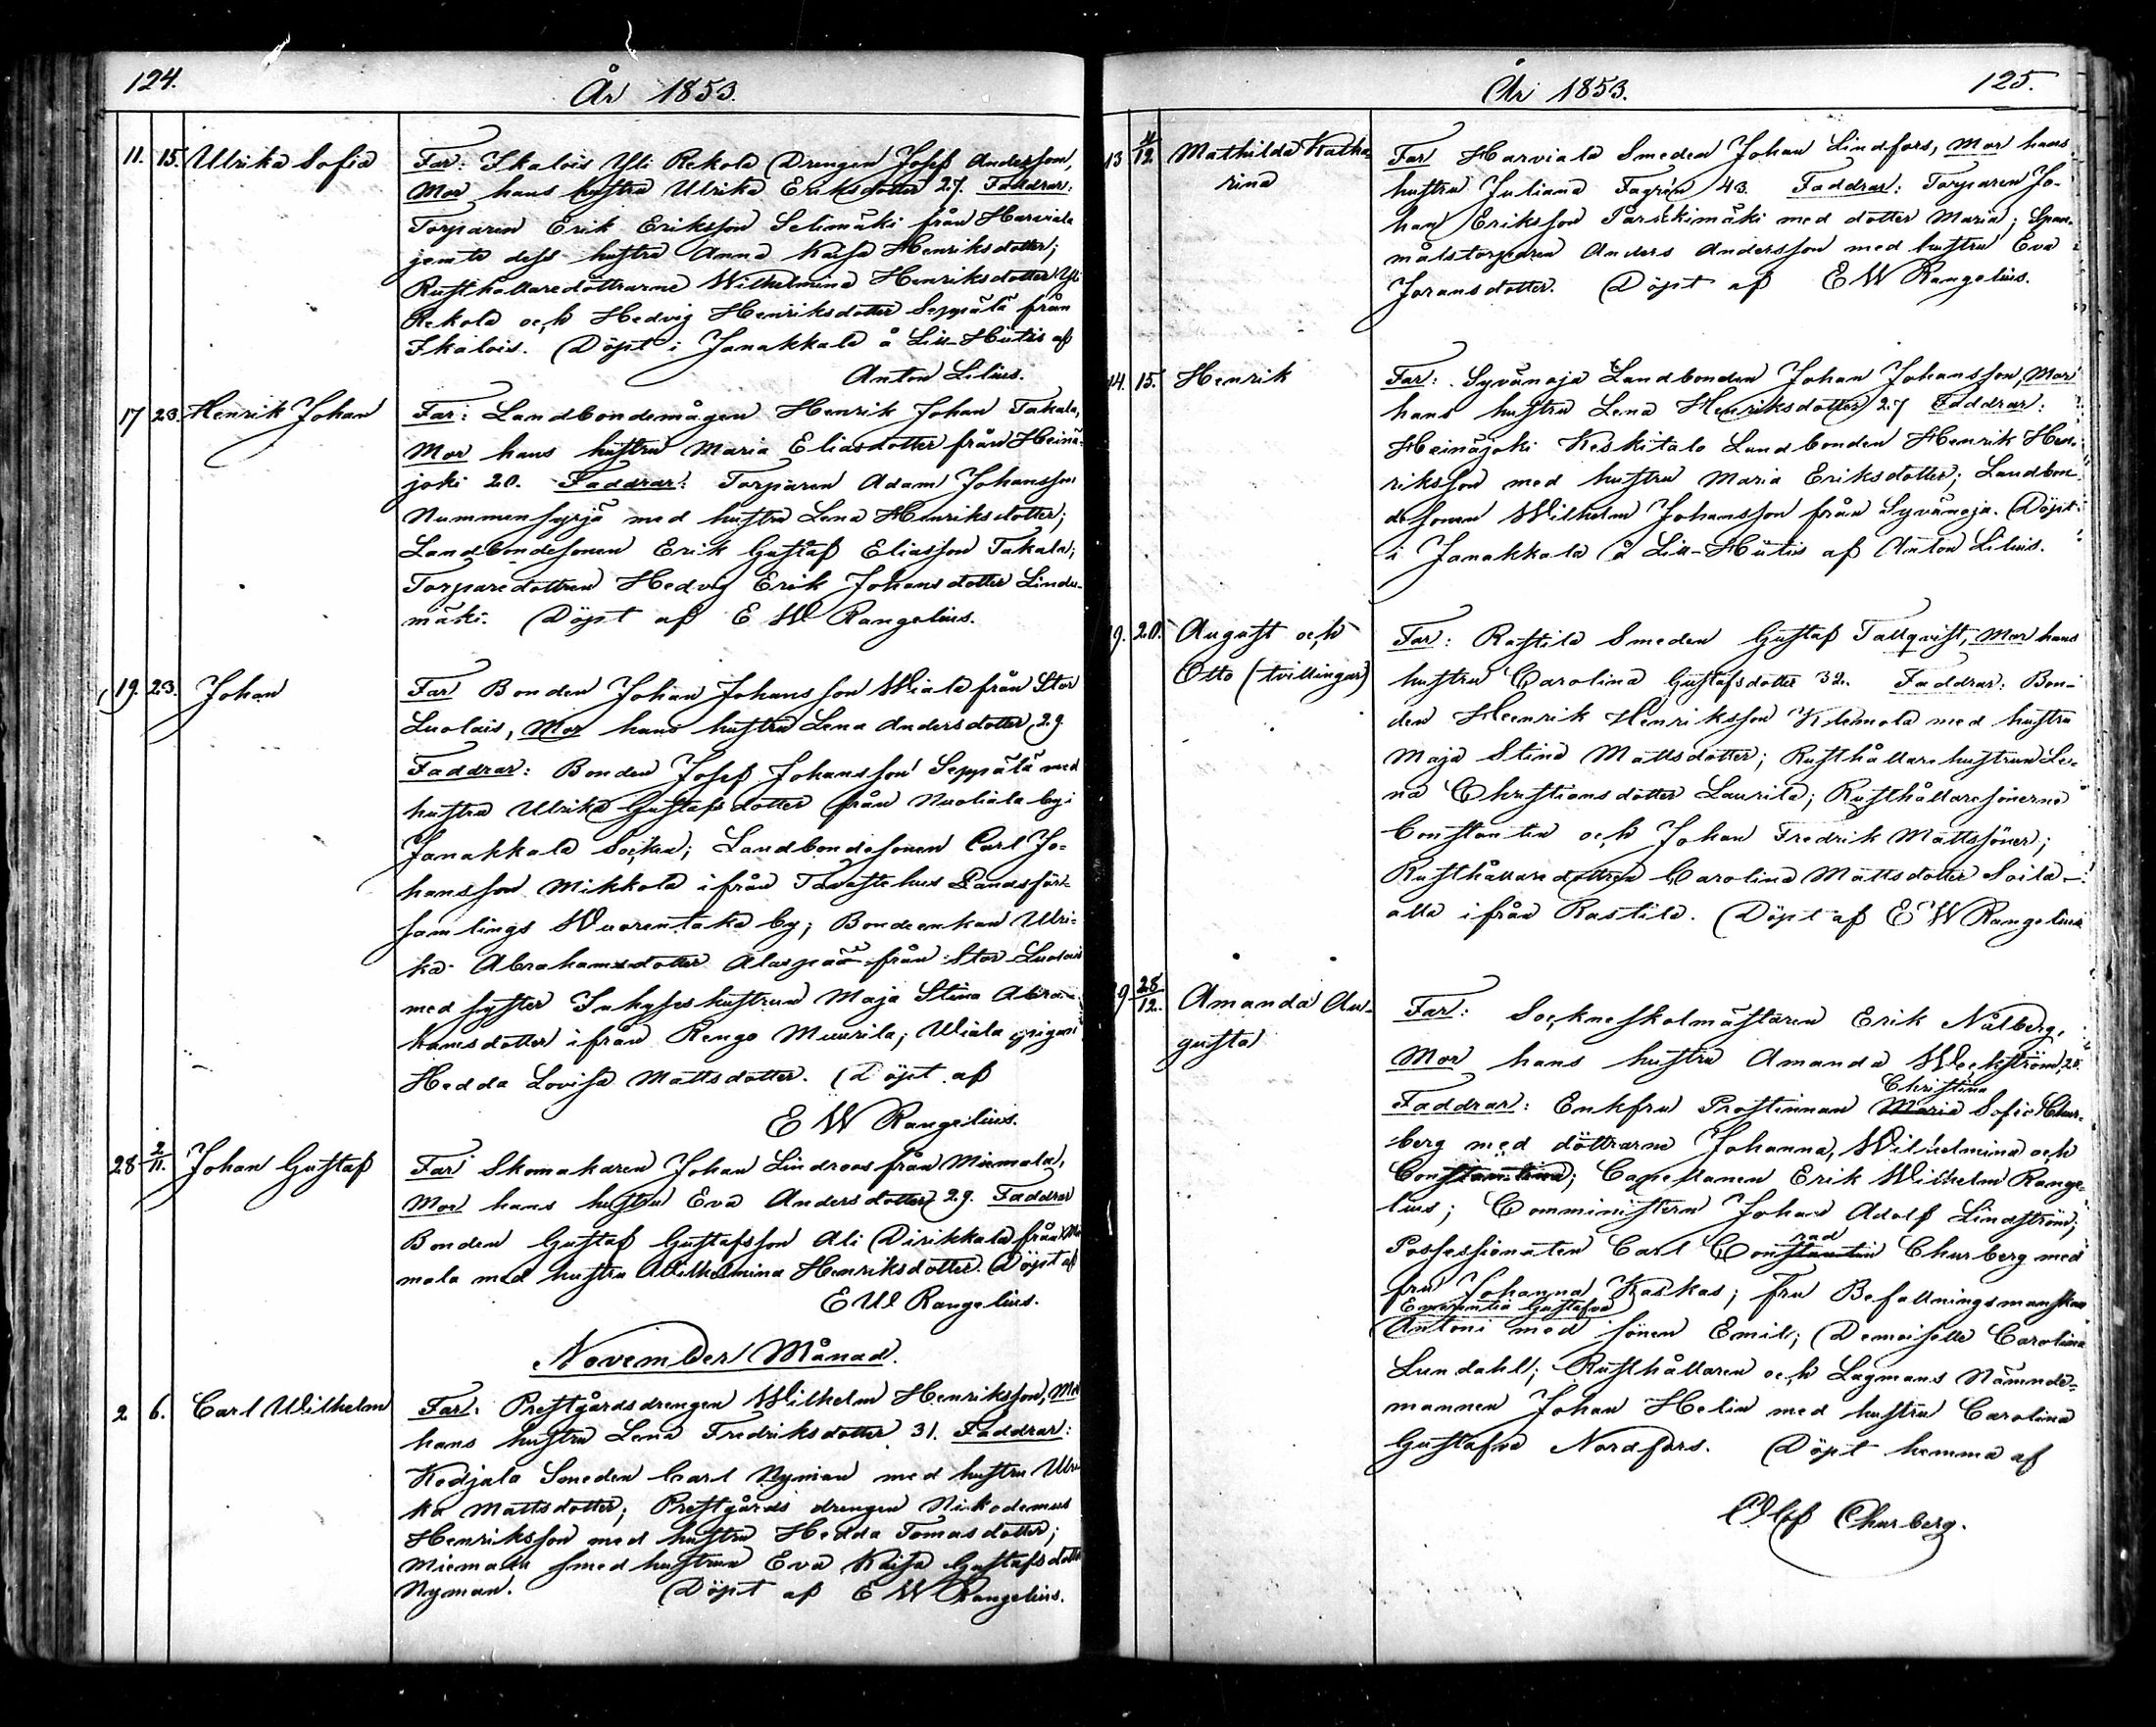 124.
År 1853.
11. 15. Ulrika Sofia
Far: Ikalois Yli Rekola Drengen Josef Andersson,
Mor hans hustru Ulrika Eriksdotter 27. Faddrar:
Torparen Erik Eriksson Selimäki från Harviala
jemte dess hustru Anna Kaisa Henriksdotter;
Rusthållaredöttrarne Wilhelmina Henriksdotter Yli
Rekola och Hedvig Henriksdotter Seppälä från
Ikalois. Döpt i Janakkala å Lill-Hütis af
Anton Lilius.
17 23. Henrik Johan
Far: Landbondemågen Henrik Johan Takala,
Mor hans hustru Maria Eliasdotter från Heinä-
joki 20. Faddrar: Torparen Adam Johansson
Nummensyrjä med hustru Lena Henriksdotter;
Landbondesonen Erik Gustaf Eliasson Takala;
Torparedottren Hedvig Erik Johansdotter Lindu-
mäki. Döpt af E W Rangelius.
19. 23. Johan
Far Bonden Johan Johansson Wiala från Stor
Luolais, Mor hans hustru Lena Andersdotter 29.
Faddrar: Bonden Josef Johansson Seppälä med
hustru Ulrika Gustafsdotter från Nuoliala by i
Janakkala Socken; Landbondesonen Carl Jo-
hansson Mikkola ifrån Tavastehus Landsför-
samlings Wuorentaka by; Bondeenkan Ulri-
ka Abrahamsdotter Alaspää från Stor Luolais
med syster Inhyseshustrun Maja Stina Abra-
hamsdotter ifrån Rengo Muurila; Wiala pigan
Hedda Lovisa Mattsdotter. Döpt af
E W Rangelius.
28 2/11. Johan Gustaf
Far Skomakaren Johan Lindroos från Miemala,
Mor hans hustru Eva Andersdotter 29. Faddrar
Bonden Gustaf Gustafsson Ali Dirikkala från Mie
mala med hustru Wilhelmina Henriksdotter. Döpt af
E W Rangelius.
November Månad.
2 6. Carl Wilhelm
Far: Prestgårdsdrengen Wilhelm Henriksson, Mor
hans hustru Lena Fredriksdotter 31. Faddrar:
Kedjala Smeden Carl Nyman med hustru Ulri
ka Mattsdotter; Prestgårds drengen Nikodemus
Henriksson med hustru Hedda Tomasdotter;
Miemala smedhustrun Eva Kaisa Gustafsdotter
Nyman. Döpt af E W Rangelius.
År 1853.
125.
13 11/12. Mathilda Katha
rina
Far Harviala Smeden Johan Lindfors, Mor hans
hustru Juliana Fagrén 43. Faddrar: Torparen Jo-
han Eriksson Parikimäki med dotter Maria; Span-
målstorparen Anders Andersson med hustru Eva
Joransdotter. Döpt af E W Rangelius.
14. 15. Henrik
Far: Syvänoja Landbonden Johan Johansson, Mor
hans hustru Lena Henriksdotter 27 Faddrar:
Heinäjoki Keskitalo Landbonden Henrik Hen-
riksson med hustru Maria Eriksdotter; Landbon-
desonen Wilhelm Johansson från Syvänoja. Döpt
i Janakkala å Lill-Hütis af Anton Lilius.
19. 20. August och
Otto (tvillingar)
Far: Rastila Smeden Gustaf Tallqvist, Mor hans
hustru Carolina Gustafsdotter 32. Faddrar: Bon-
den Heenrik Henriksson Klemola med hustru
Maja Stina Mattsdotter; Rusthållarehustrun Le-
na Christiansdotter Laurila; Rusthållaresönerne
Constantin och Johan Fredrik Mattssöner;
Rusthållaredottren Carolina Mattsdotter Soila-
alla ifrån Rastila. Döpt af E W Rangelius
19 28/12. Amanda Au-
gusta
Far: Sockneskolmästaren Erik Nålberg,
Mor hans hustru Amanda Weckström, 25.
Christina
Faddrar: Enkefru Prostinnan Maria Sofie Chur-
berg med döttrarne Johanna, Wilhelmina och
Constantina; Capellanen Erik Wilhelm Range-
lius; Comministern Johan Adolf Lindström;
rad
Possessionaten Carl Constantin Churberg med
fru Johanna Kaskas; fru Befallningsmanskan
Emerentia Gustafva
Antoni med sönen Emil; Demoiselle Carolina
Lundahl; Rusthållaren och Lagmans Nämnde-
mannen Johan Helin med hustru Carolina
Gustafva Nordfors. Döpt hemma af
Olof Churberg.